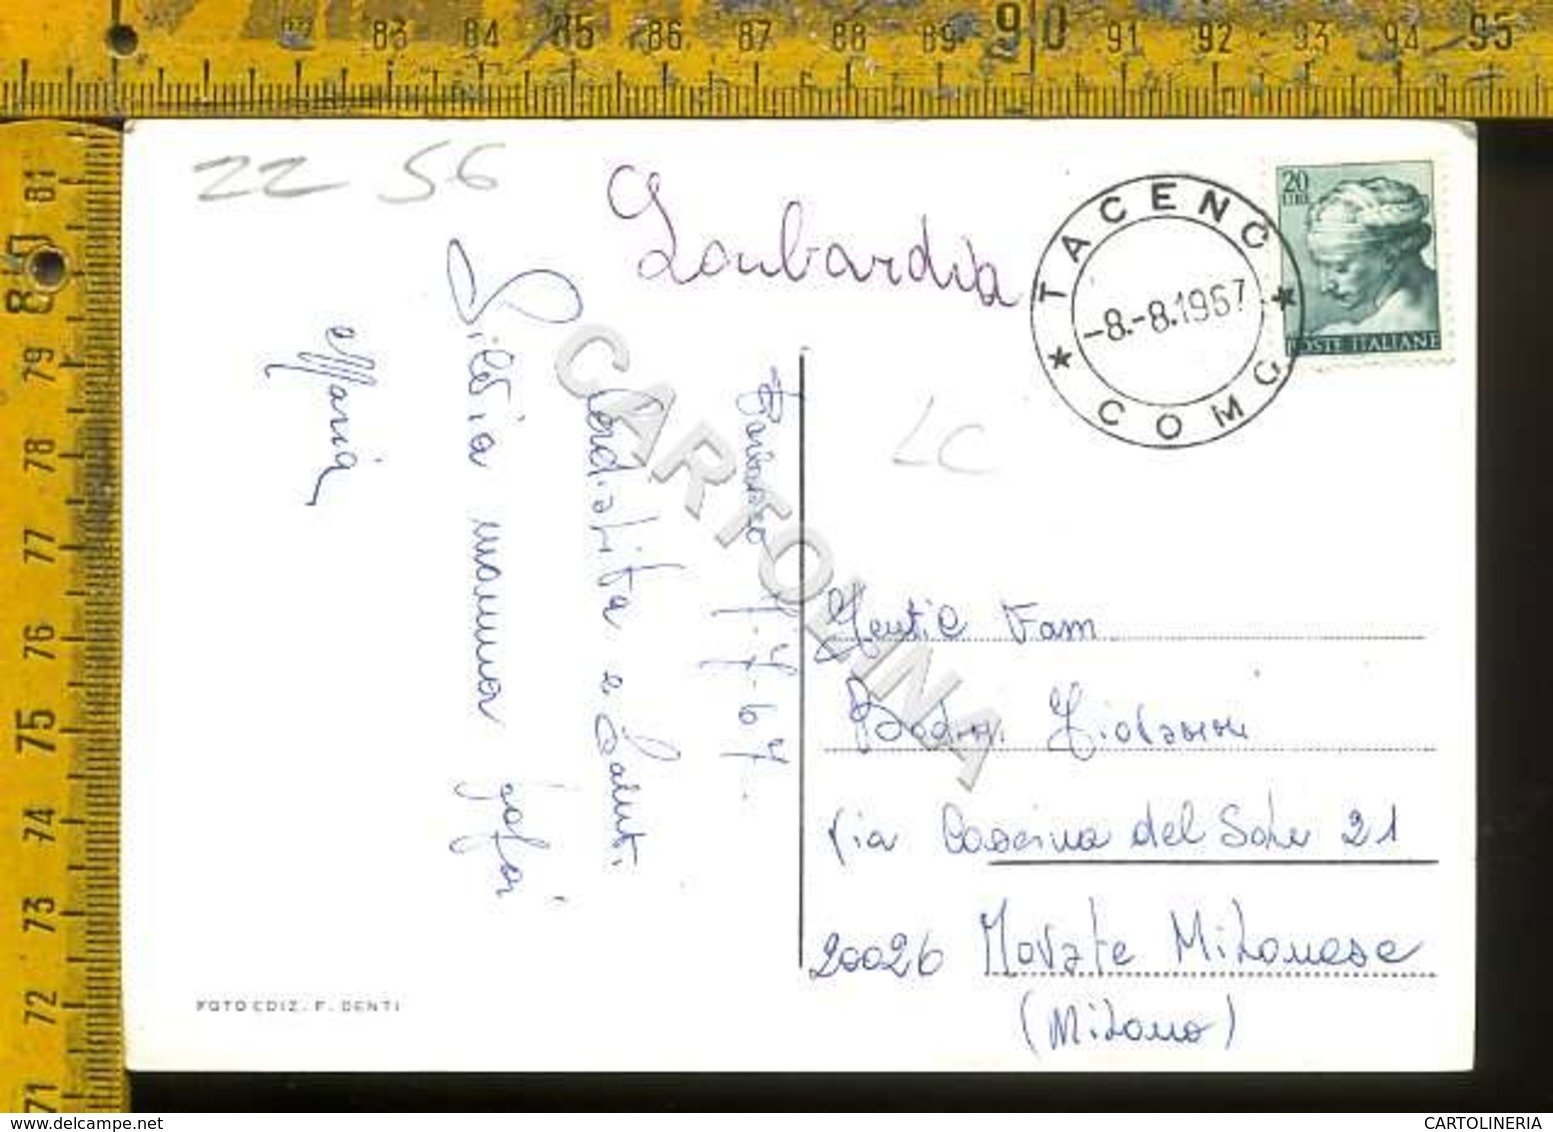 83 84 85 86 87 88 89 90 91 92 93 94 95
81
80
79
78
77
76
75
74
73
72
71
22 56
Lombardia
TACENO
-8.-8.1967
* COMO *
20
LIRE
POSTE ITALIANE
LC
7-7-67.
Cordialità e Saluti
Silvia mamma
Maria
Gentil Fam
Giovanni
Via Cascina del Sole 21
20026 Novate Milanese
(Milano)
FOTO EDIZ. F. DENTI
CARTOLINA
CARTOLINERIA